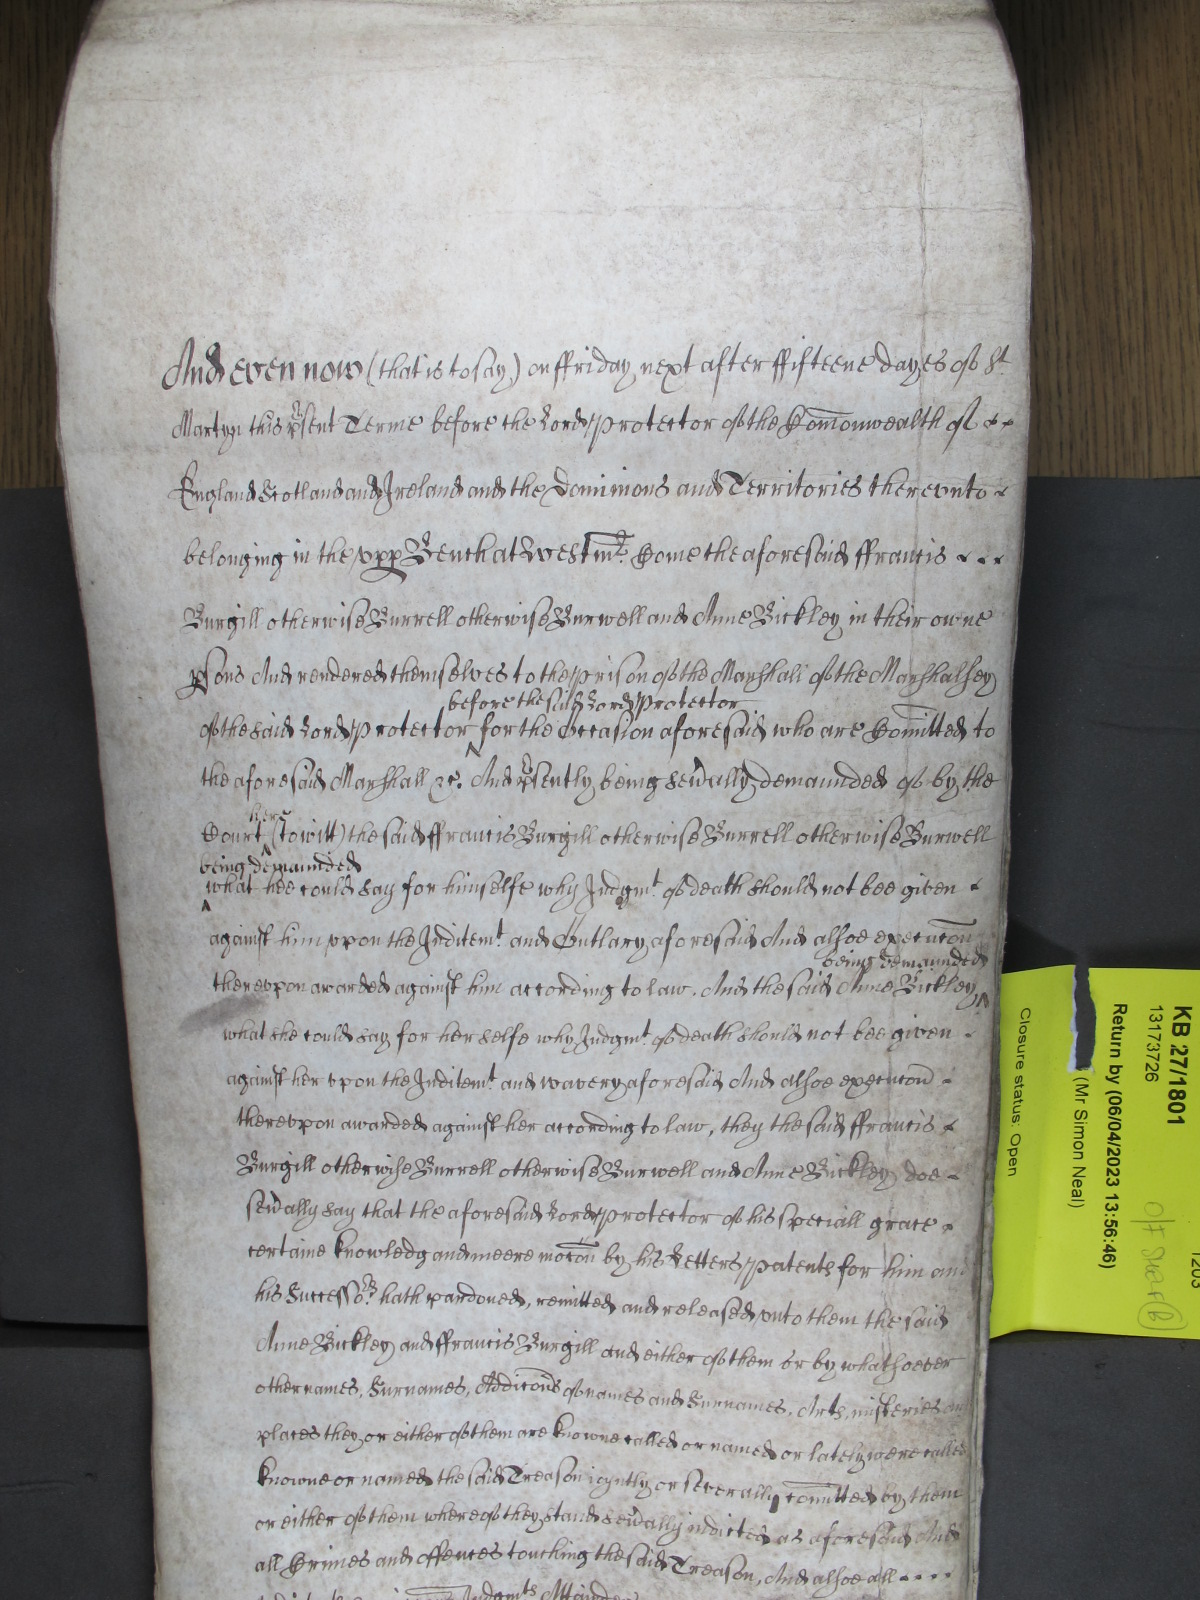 And even now (that is to say) on ffriday next after ffifteene dayes of St
Martyn this psent Terme before the Lord Protector of the Comonwealth of
England Scotland and Ireland and the Dominions and Territories therevnto
belonging in the vpp Bench at Westmr. Come the aforesaid ffrancis
Burgill otherwise Burrell otherwise Burwell and Anne Bickley in their owne
psons And rendered themselves to the Prison of the Marshall of the Marshalsey
before the said Lord Protector
of the said Lord Protector for the Occasion aforesaid who are Comitted to
the aforesaid Marshall &c. And psently being sevally demaunded of by the
here
Court (to witt) the said ffrancis Burgill otherwise Burrell otherwise Burwell
being demaunded
what hee could say for himselfe why Judgmt. of death should not bee given
against him vpon the Inditemt. and Outlary aforesaid And alsoe execucon
being demaunded
therevpon awarded against him according to law. And the said Anne Bickley
what she could say for her selfe why Judgmt. of death should not bee given
against her vpon the Inditemt. and wavery aforesaid And alsoe execucon
therevpon awarded against her according to law, they the said ffrancis
Burgill otherwise Burrell otherwise Burwell and Anne Bickley doe
sevally say that the aforesaid Lord Protector of his speciall grace
certaine knowledg and meere mocon by his Letters Patents for him and
his Successors. hath pardoned, remitted and released vnto them the said
Anne Bickley and ffrancis Burgill and either of them or by whatsoever
other names, Surnames, Addicons of names and Surnames, Arts, misteries and
places they or either of them are knowne called or named or lately were called
knowne or named the said Treason ioyntly or severally comitted by them
or either of them whereof they stand sevally indicted as aforesaid And
all Crimes and offences touching the said Treason, And alsoe all
Judgmts Attainder
KB 27/1801
13173726
Return by (06/04/2023 13:56:46)
(Mr Simon Neal)
Closure status: Open
1203